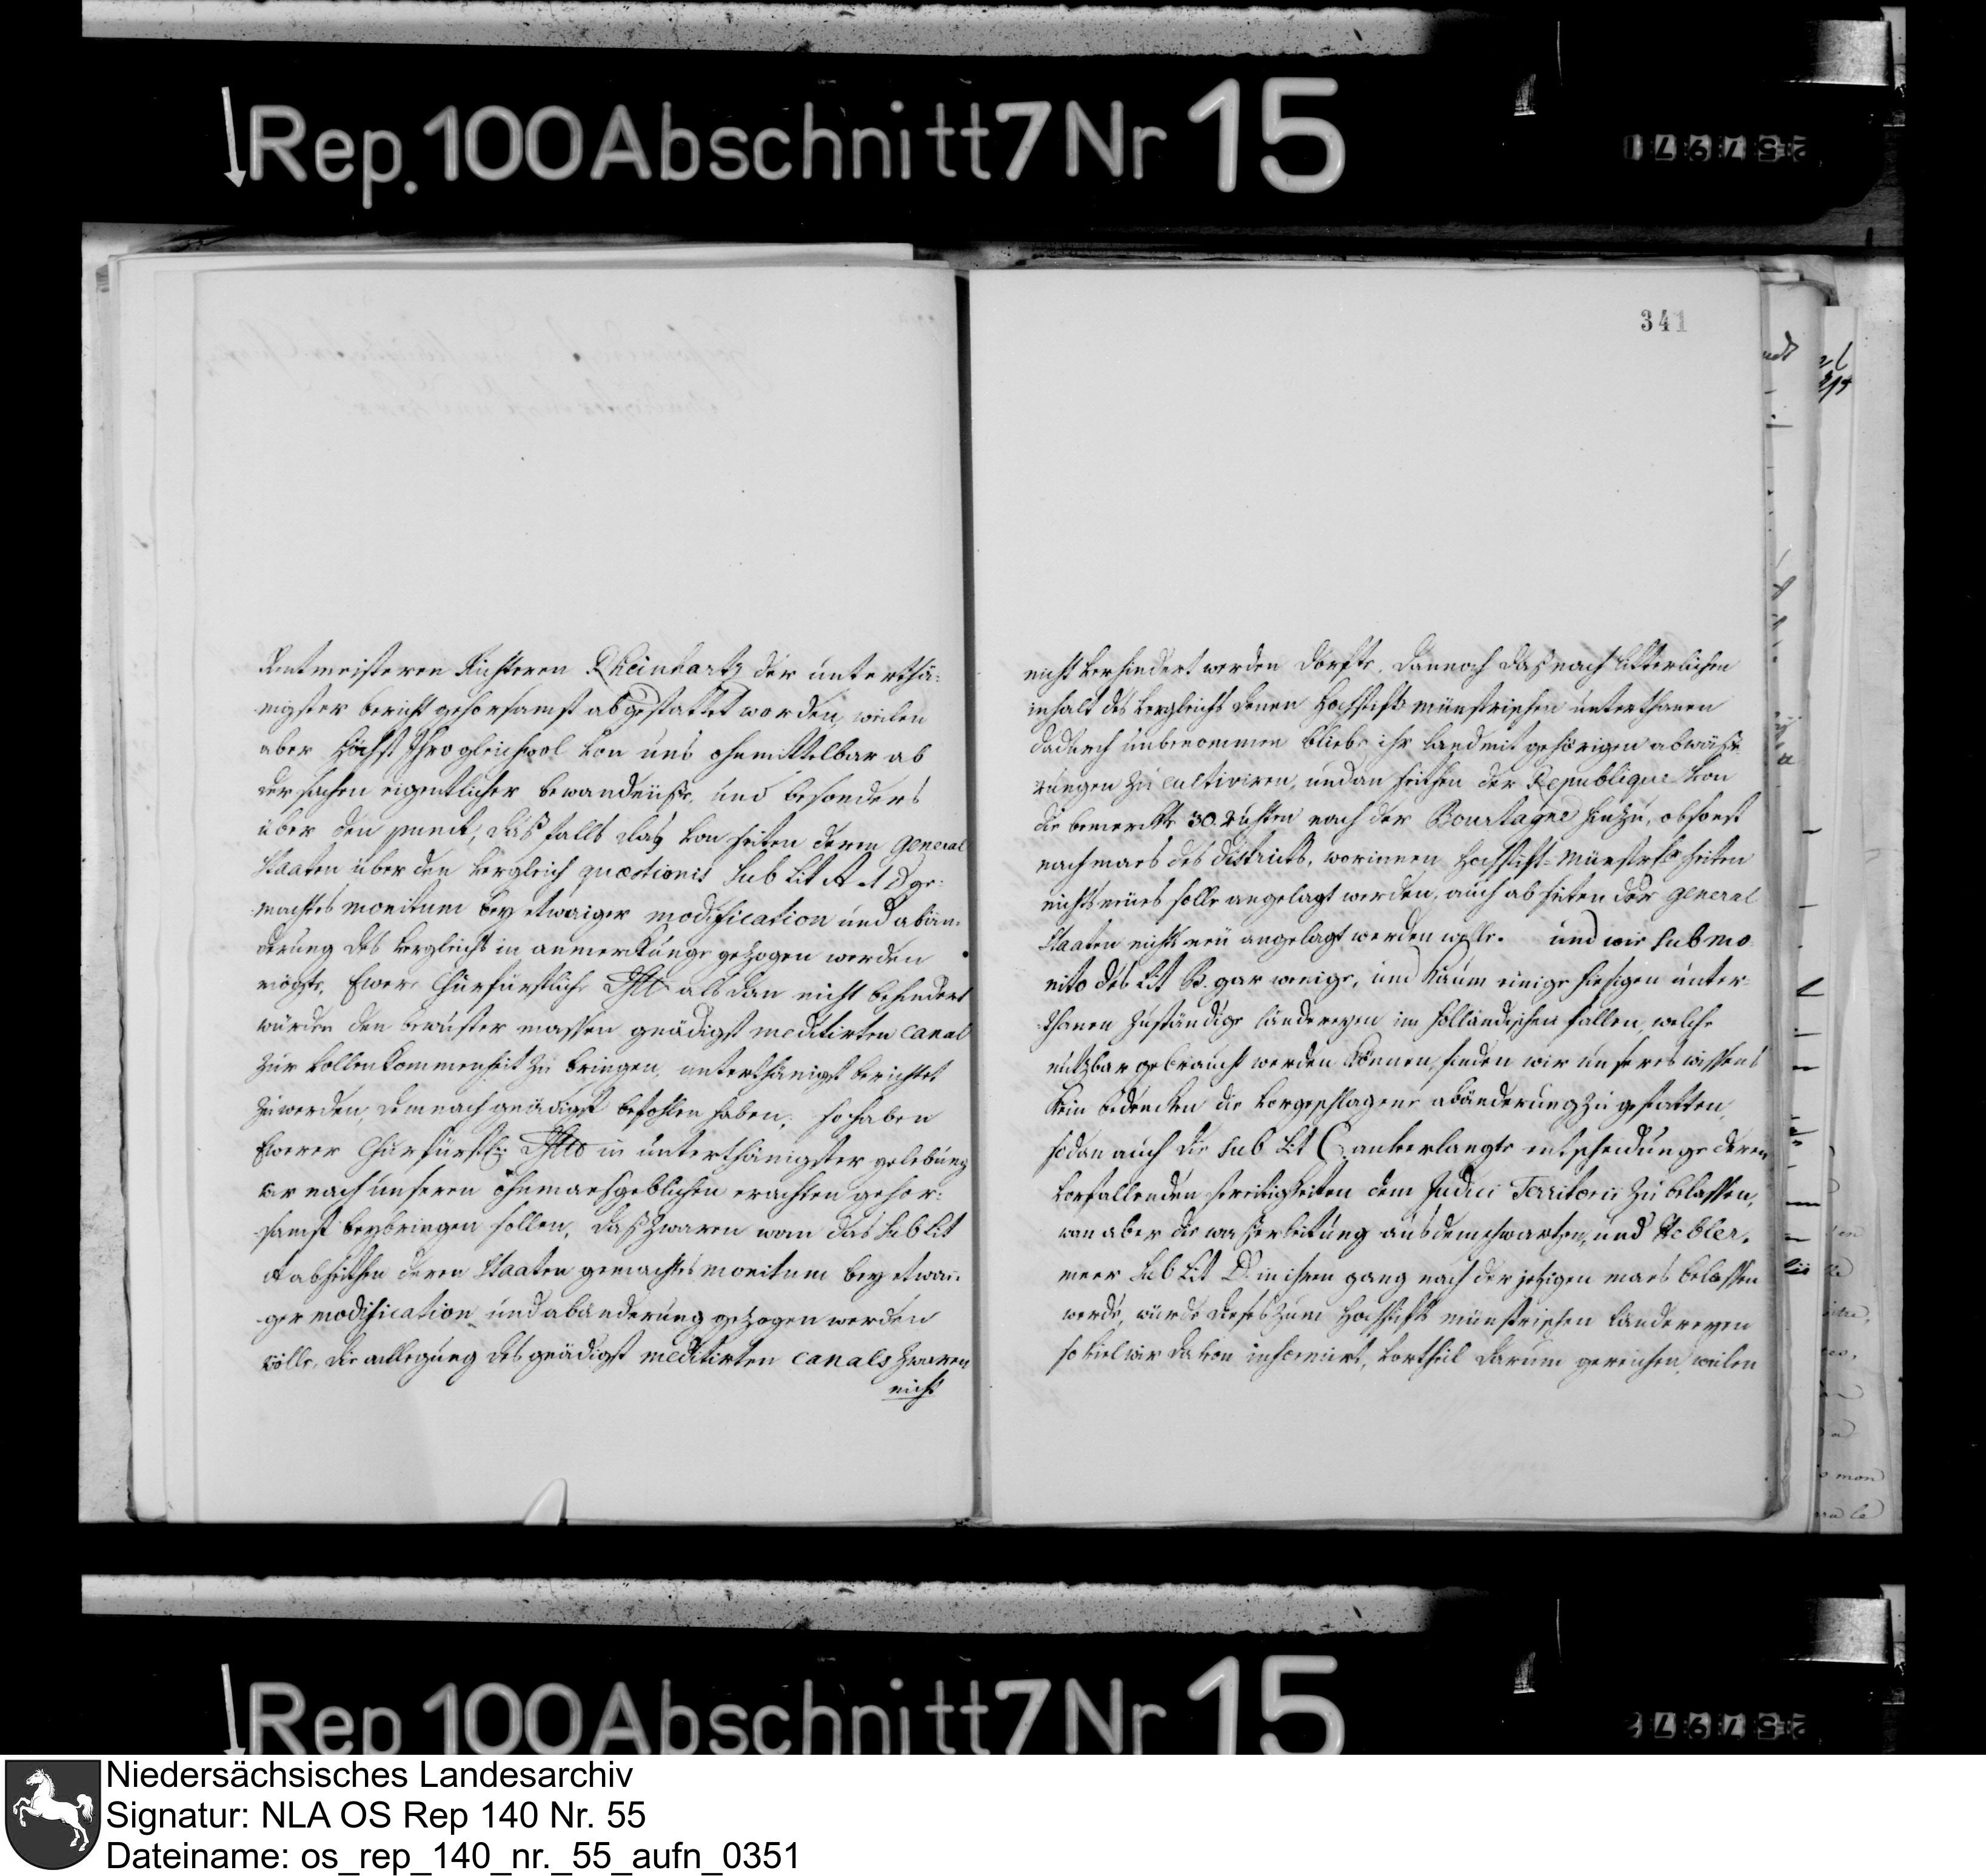 Rep. 100 Abschnitt 7 Nr 15
341
Rentmeisteren Richteren Rheinhartz der unterthä-
nigster bericht gehorsamst abgestattet worden, weilen
aber Höchst Ihro gleichwol von uns ohnmittelbar ab
der sachen eigentlicher bewandnüße, und besonders
über den punct, daß falls das von seiten deren General
Staaten über den vergleich quæstionis sub Lit A D ge-
machtes monitum bey etwaiger modification und abän-
derung des vergleichs in anmerckunge gezogen werden
mögte, Ewer Churfürstliche alsdan nicht behindert
würden den bewuster massen gnädigst meditirten canal
zur vollenkommenheit zu bringen, unterthänigst berichtet
zu werden, demnach gnädigst befohlen haben, so haben
Ewerer Churfürstl: in unterthänigster gelebung
wir nach unseren ohnmaesgeblichen erachten gehor-
samst beybringen sollen, daß zwaren wan das sub Lit
A abseithen deren Staaten gemachtes monitum bey etwai-
ger modification und abänderung gezogen werden
wölle, die anlegung des gnädigst meditirten canals zwaren
nicht
nicht verhindert werden dorfte, dannoch daß nach litterlichen
inhalt des vergleichs denen Hochstifts münstrischen unterthanen
dadurch unbenommen bliebe ihr land mit gehörigen abwäße-
rungen zu cultiviren, und an seithen der Republique von
die bemerckte 30. ruthen nach der Bourtagne hinzu, obsonst
nach maes des districts, worinnen Hochstift-Münstrisch seiten
nichts neues solle angelagt werden, auch ab seiten der General
Staaten nichts neu angelagt werden wolle. und wie sub mo
nito des Lit B. gar wenige, und kaum einige hiesigen unter-
thanen zuständige länderyen im holländischen fallen, welche
nutzbar gebraucht werden können, finden wir unseres wissens
kein bedencken die vorgeschlagene abänderung zu gestatten,
sodan auch die sub Lit C. anverlangte entscheidunge deren
vorfallenden streitigkeiten dem Judici Territorii zu belassen,
wan aber die wasserleitung aus dem schwarten, und Hebler-
meer sub Lit D. in ihren gang nach der jetzigen maes belassen
werde, würde dieses zum Hochstifts münstrischen länderyen
so viel wir davon informirt, vortheil darum gereichen, weilen
Rep 100 Abschnitt 7 Nr 15
Niedersächsisches Landesarchiv
Signatur: NLA OS Rep 140 Nr. 55
Dateiname: os_rep_140_nr._55_aufn_0351